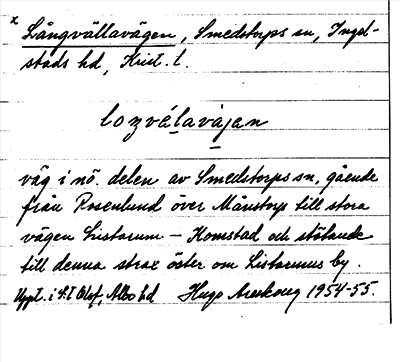 x Långvällavägen, Smedstorps sn, Ingel-
stads hd, Krist. l.
lozvélavàjen
väg i nö. delen av Smedstorps sn, gående
från Rosenlund över Månstorp till stora
vägen Listarum – Komstad och stötande
till denna strax öster om Listarums by.
Uppt. i S:t Olof, Albo hd Hugo Areskoug 1954-55.